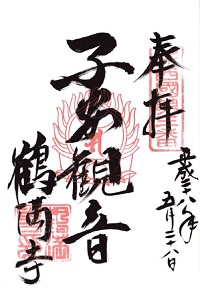 奉拝
平成二十八年
五月二十八日
子安観音
鶴満寺